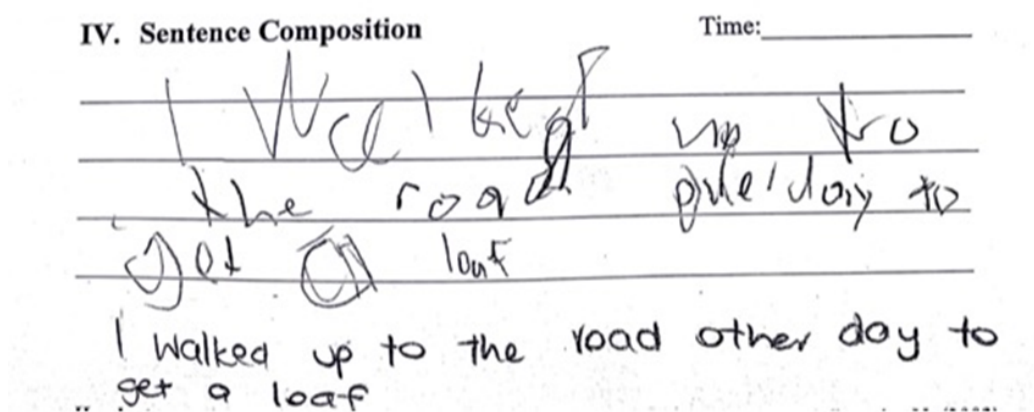 IV. Sentence Composition Time:
I Walked up to
the road day to
get a loaf
I walked up to the road other day to
get a loaf